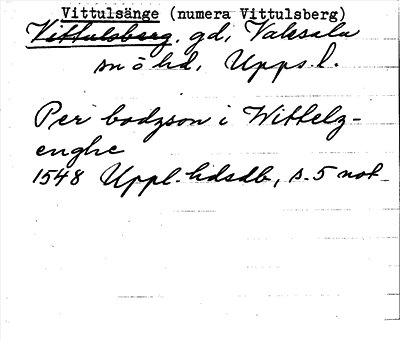 Vittulsänge (numera Vittulsberg)
Vittulsberg, gd, Valsala
sn ö hd, Upps. l.
Per bodzson i Wittelz-
enghe
1548 Uppl. hdsdb, s. 5 not